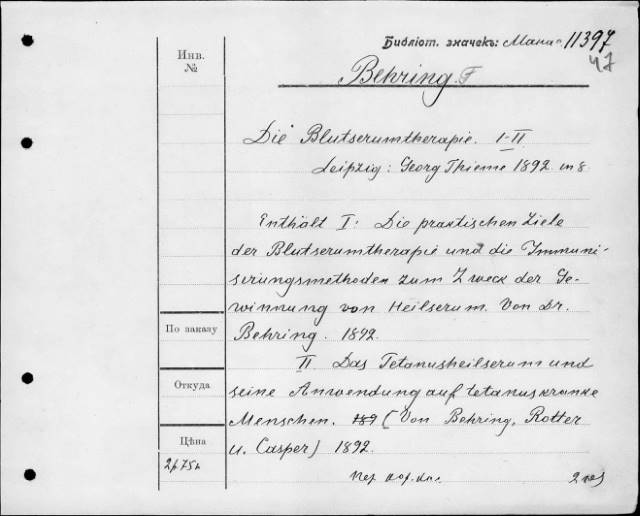 Библіот. значекъ: Мани 11397
47
Инв.
№
Behring. F
Die Blutserumtherapie. I-II
Leipzig: Georg Thieme 1892. in 8
Enthält I: Die praktischen Ziele
der Blutserumtherapie und die Immuni-
serungsmethoden zum Zweck der Ge-
winnung von Heilserum. Von Dr.
По заказу
Behring. 1892.
II. Das Tetanusheilserum und
Откуда
seine Anwendung auf tetanuskranke
Menschen. 189 (Von Behring, Rotter
Цѣна
u. Casper) 1892.
2р75к